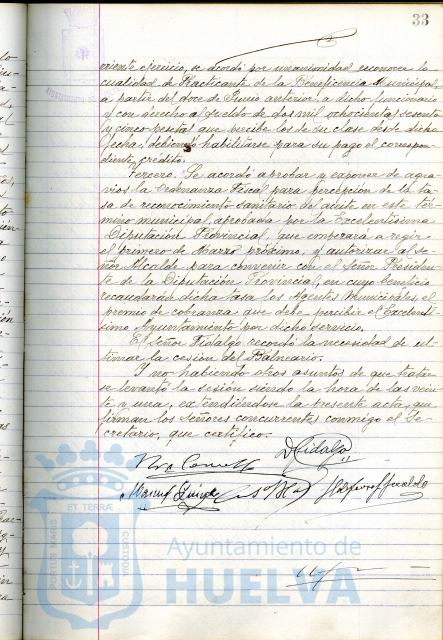 33
rriente ejercicio, se acordó por unanimidad reconocer la
cualidad de Practicante de la Beneficencia Municipal,
a partir del doce de Junio anterior, a dicho funcionario
y con derecho al sueldo de dos mil ochocientas sesenta
y cinco pesetas que perciben los de su clase desde dicha
fecha, debiendo habilitarse para su pago el correspon-
diente crédito.
Tercero. Se acordó aprobar y exponer de agra-
vios la Ordenanza Fiscal para percepción de la ta-
sa de reconocimiento sanitario del aceite en este tér-
mino municipal, aprobada por la Excelentísima
Diputación Provincial, que empezará a regir
el primero de Marzo próximo, y autorizar al se-
ñor Alcalde para convenir con el Señor Presiden-
te de la Diputación Provincial, en cuyo beneficio
recaudarán dicha tasa los Agentes Municipales, el
premio de cobranza que debe percibir el Excelentí-
simo Ayuntamiento por dicho servicio.
El Señor Hidalgo recordó la necesidad de ul-
timar la cesión del Balneario.
Y no habiendo otros asuntos de que tratar
se levantó la sesión siendo la hora de las vein-
te y una, extendiéndose la presente acta, que
firman los Señores concurrentes conmigo el Se-
cretario, que certifico.
PORTUS MARIS
ET TERRÆ
CUSTODIA
Ayuntamiento de
HUELVA